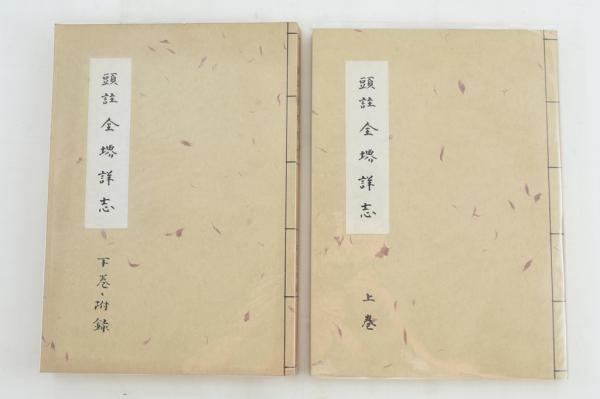 頭註 全堺詳志
上巻
頭註 全堺詳志
下巻、附録